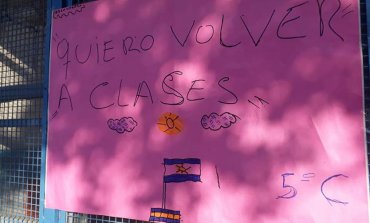 "QUIERO VOLVER
A CLASES"
5º C